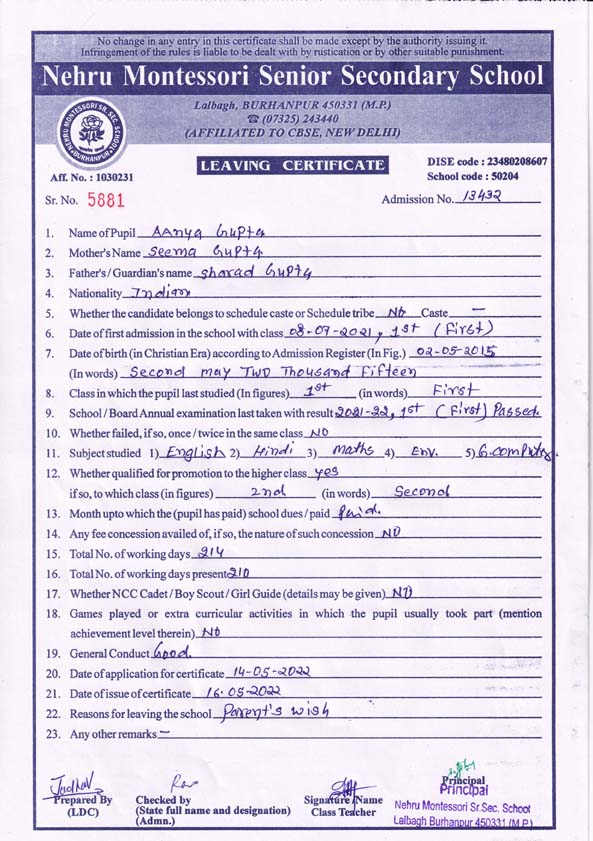 No change in any entry in this certificate shall be made except by the authority issuing it.
Infringement of the rules is liable to be dealt with by rustication or by other suitable punishment.
Nehru Montessori Senior Secondary School
Lalbagh, BURHANPUR 450331 (M.P.)
☎ (07325) 243440
(AFFILIATED TO CBSE, NEW DELHI)
NEHRU MONTESSORI SR. SEC. SCHOOL
BURHANPUR
LEAVING CERTIFICATE
DISE code : 23480208607
Aff. No. : 1030231
School code : 50204
Sr. No. 5881
Admission No. 13432
1. Name of Pupil Aanya Gupta
2. Mother's Name Seema Gupta
3. Father's / Guardian's name Sharad Gupta
4. Nationality Indian
5. Whether the candidate belongs to schedule caste or Schedule tribe No Caste —
6. Date of first admission in the school with class 08-07-2021, 1st (First)
7. Date of birth (in Christian Era) according to Admission Register (In Fig.) 02-05-2015
(In words) Second may Two Thousand Fifteen
8. Class in which the pupil last studied (In figures) 1st (in words) First
9. School / Board Annual examination last taken with result 2021-22, 1st (First) Passed.
10. Whether failed, if so, once / twice in the same class No
11. Subject studied 1) English 2) Hindi 3) Maths 4) Env. 5) G.computer
12. Whether qualified for promotion to the higher class yes
if so, to which class (in figures) 2nd (in words) Second
13. Month upto which the (pupil has paid) school dues / paid Paid.
14. Any fee concession availed of, if so, the nature of such concession NO
15. Total No. of working days 214
16. Total No. of working days present 210
17. Whether NCC Cadet / Boy Scout / Girl Guide (details may be given) NO
18. Games played or extra curricular activities in which the pupil usually took part (mention
achievement level therein) No
19. General Conduct Good.
20. Date of application for certificate 14-05-2022
21. Date of issue of certificate 16-05-2022
22. Reasons for leaving the school Parent's wish
23. Any other remarks —
Jadhav
Prepared By
(LDC)
Checked by
(State full name and designation)
(Admn.)
Signature / Name
Class Teacher
Principal
Principal
Nehru Montessori Sr.Sec. School
Lalbagh Burhanpur 450331 (M.P.)